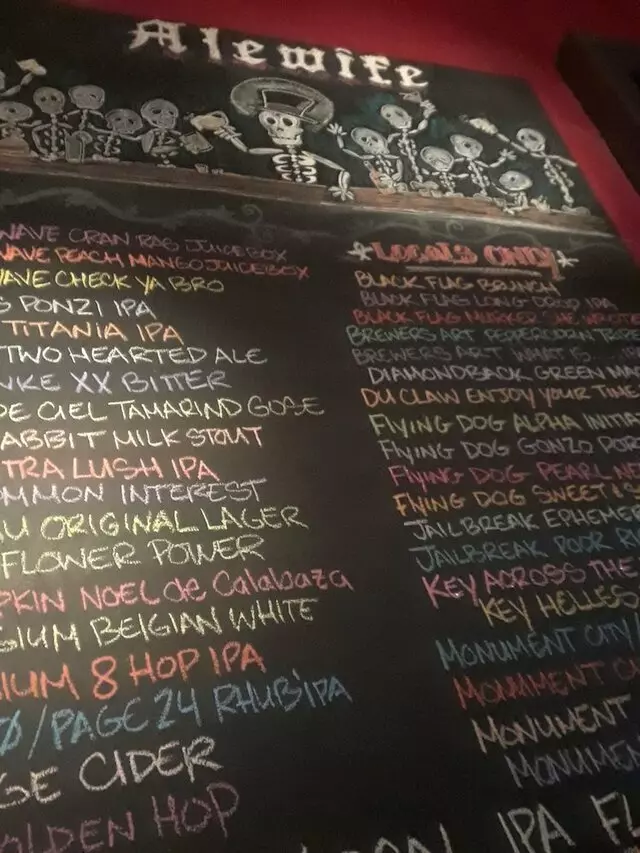 Alewife
WAVE CRAN RAS JUICEBOX
WAVE PEACH MANGO JUICEBOX
WAVE CHECK YA BRO
S PONZI IPA
TITANIA IPA
TWO HEARTED ALE
NKE XX BITTER
DE CIEL TAMARIND GOSE
RABBIT MILK STOUT
TRA LUSH IPA
OMMON INTEREST
AU ORIGINAL LAGER
FLOWER POWER
PKIN NOEL de Calabaza
GIUM BELGIAN WHITE
IUM 8 HOP IPA
Ø/PAGE 24 RHUBIPA
GE CIDER
OLDEN HOP
LOCALS ONLY
BLACK FLAG BRUNCH
BLACK FLAG LONG DROP IPA
BLACK FLAG SHE
BREWERS ART
BREWERS ART WHAT IS
DIAMONDBACK GREEN MA
DU CLAW ENJOY YOUR TIME
FLYING DOG ALPHA INITIA
FLYING DOG GONZO POR
FLYING DOG PEARL NE
FLYING DOG SWEET
JAILBREAK EPHEMER
JAILBREAK POOR RI
KEY ACROSS THE
KEY HELLES
MONUMENT CITY
MONUMENT CI
MONUMENT
MONUMEN
IPA FL